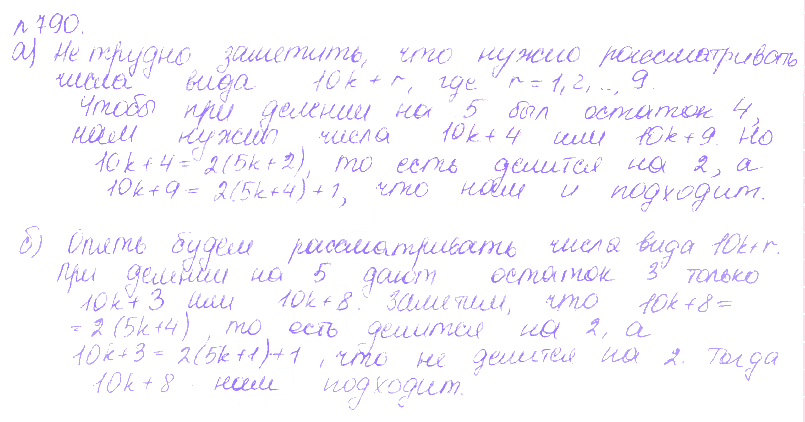 №790.
а) Не трудно заметить, что нужно рассматривать
числа вида 10k+r, где r=1,2,..,9.
Чтобы при делении на 5 был остаток 4,
нам нужно числа 10k+4 или 10k+9. Но
10k+4=2(5k+2), то есть делится на 2, а
10k+9=2(5k+4)+1, что нам и подходит.
б) Опять будем рассматривать числа вида 10k+r.
При делении на 5 дают остаток 3 только
10k+3 или 10k+8. Заметим, что 10k+8=
=2(5k+4), то есть делится на 2, а
10k+3=2(5k+1)+1, что не делится на 2. Тогда
10k+8 нам подходит.